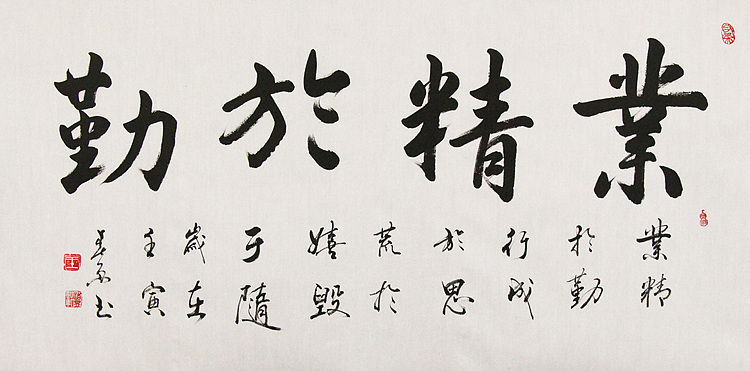 業精於勤
業精
於勤
行成
於思
荒於
嬉毀
于隨
歲在
壬寅
书